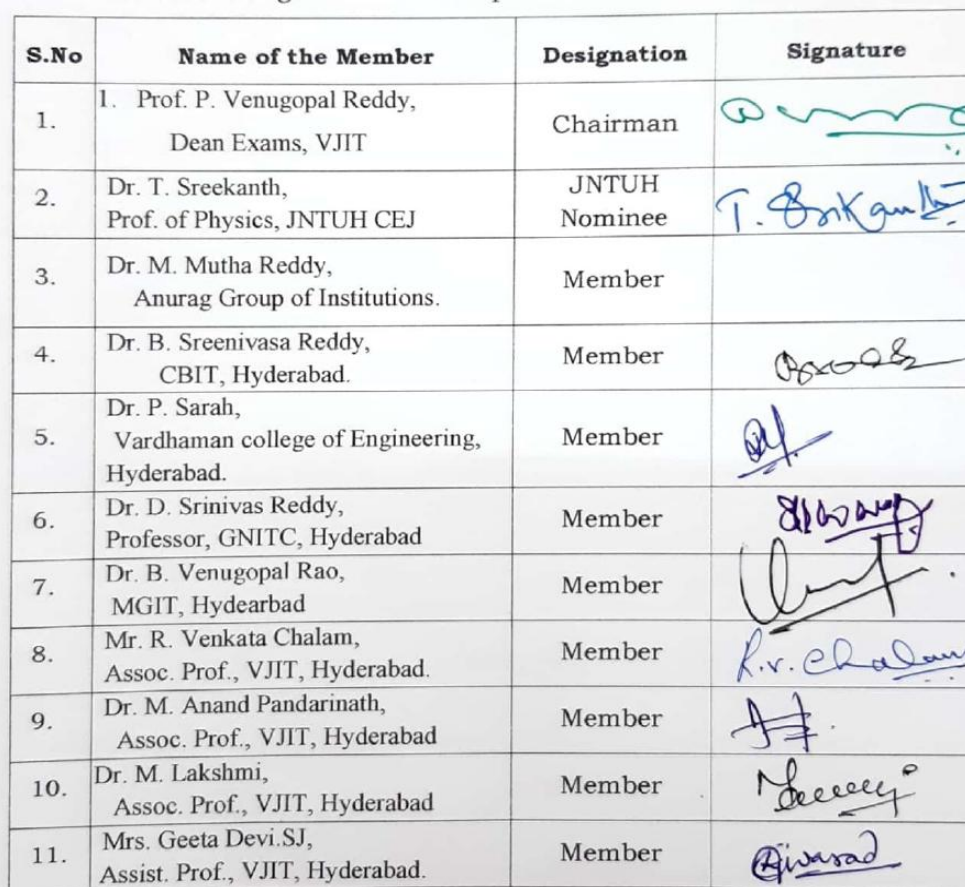 S.No Name of the Member Designation Signature
1. 1. Prof. P. Venugopal Reddy,
Dean Exams, VJIT Chairman
2. Dr. T. Sreekanth,
Prof. of Physics, JNTUH CEJ JNTUH
Nominee T. Srikanth
3. Dr. M. Mutha Reddy,
Anurag Group of Institutions. Member
4. Dr. B. Sreenivasa Reddy,
CBIT, Hyderabad. Member
5. Dr. P. Sarah,
Vardhaman college of Engineering,
Hyderabad. Member
6. Dr. D. Srinivas Reddy,
Professor, GNITC, Hyderabad Member
7. Dr. B. Venugopal Rao,
MGIT, Hydearbad Member
8. Mr. R. Venkata Chalam,
Assoc. Prof., VJIT, Hyderabad. Member R.V. Chalam
9. Dr. M. Anand Pandarinath,
Assoc. Prof., VJIT, Hyderabad Member
10. Dr. M. Lakshmi,
Assoc. Prof., VJIT, Hyderabad Member
11. Mrs. Geeta Devi.SJ,
Assist. Prof., VJIT, Hyderabad. Member